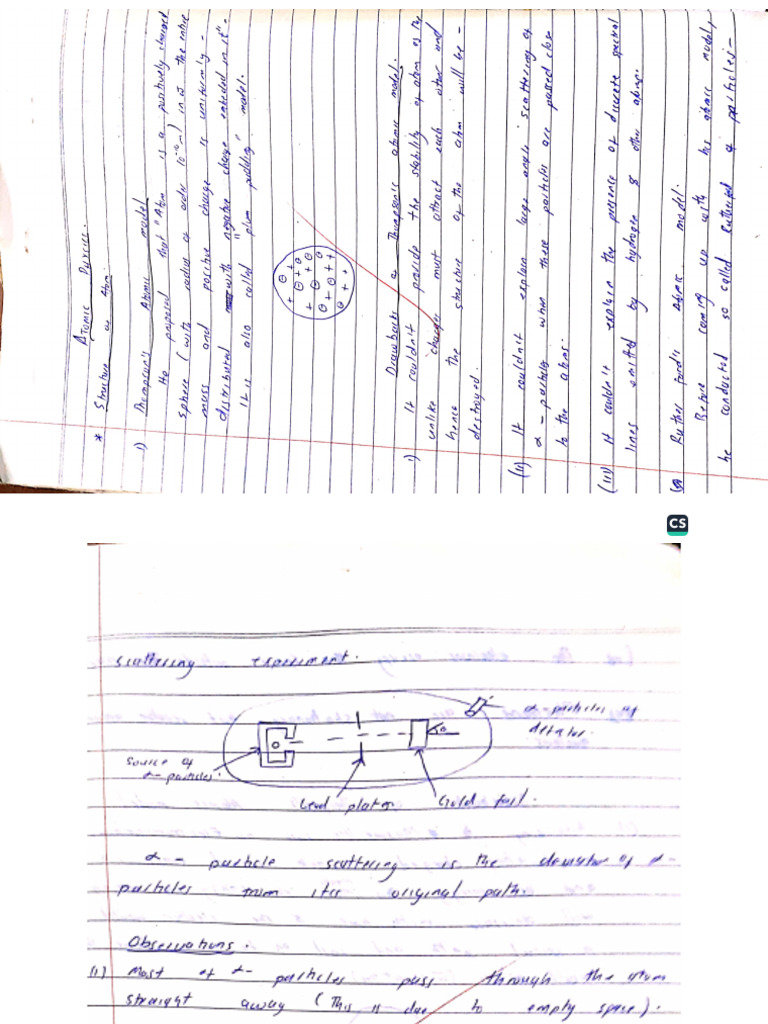 ATOMIC PHYSICS.
* Structure of Atom
1) Thompson's Atomic model
He proposed that "Atom is a positively charged
sphere (with radius of order 10⁻¹⁰m) in w the entire
mass and positive charge is uniformly -
distributed with negative charge embeded in it".
It is also called "plum pudding" model.
Drawbacks of Thompson's atomic model.
i) It couldn't provide the stability of atom as the
unlike charges must attract each other and
hence the structure of the atom will be -
destroyed.
(ii) It couldn't explain large angle scattering of
α - particles when these particles are passed close
to the atoms.
(iii) It couldn't explain the presence of discrete spectral
lines emitted by hydrogen & other atoms.
Rutherford's atomic model.
Before coming up with his atomic model,
he conducted so called Rutherford α particles -
CS
scattering experiment.
α-particles
detector.
θ
Source of
α-particles.
Lead plates
Gold foil.
α - particle scattering is the deviation of α-
particles from its original path.
Observations.
(1) Most of α- particles pass through the atom
straight away (This is due to empty space).